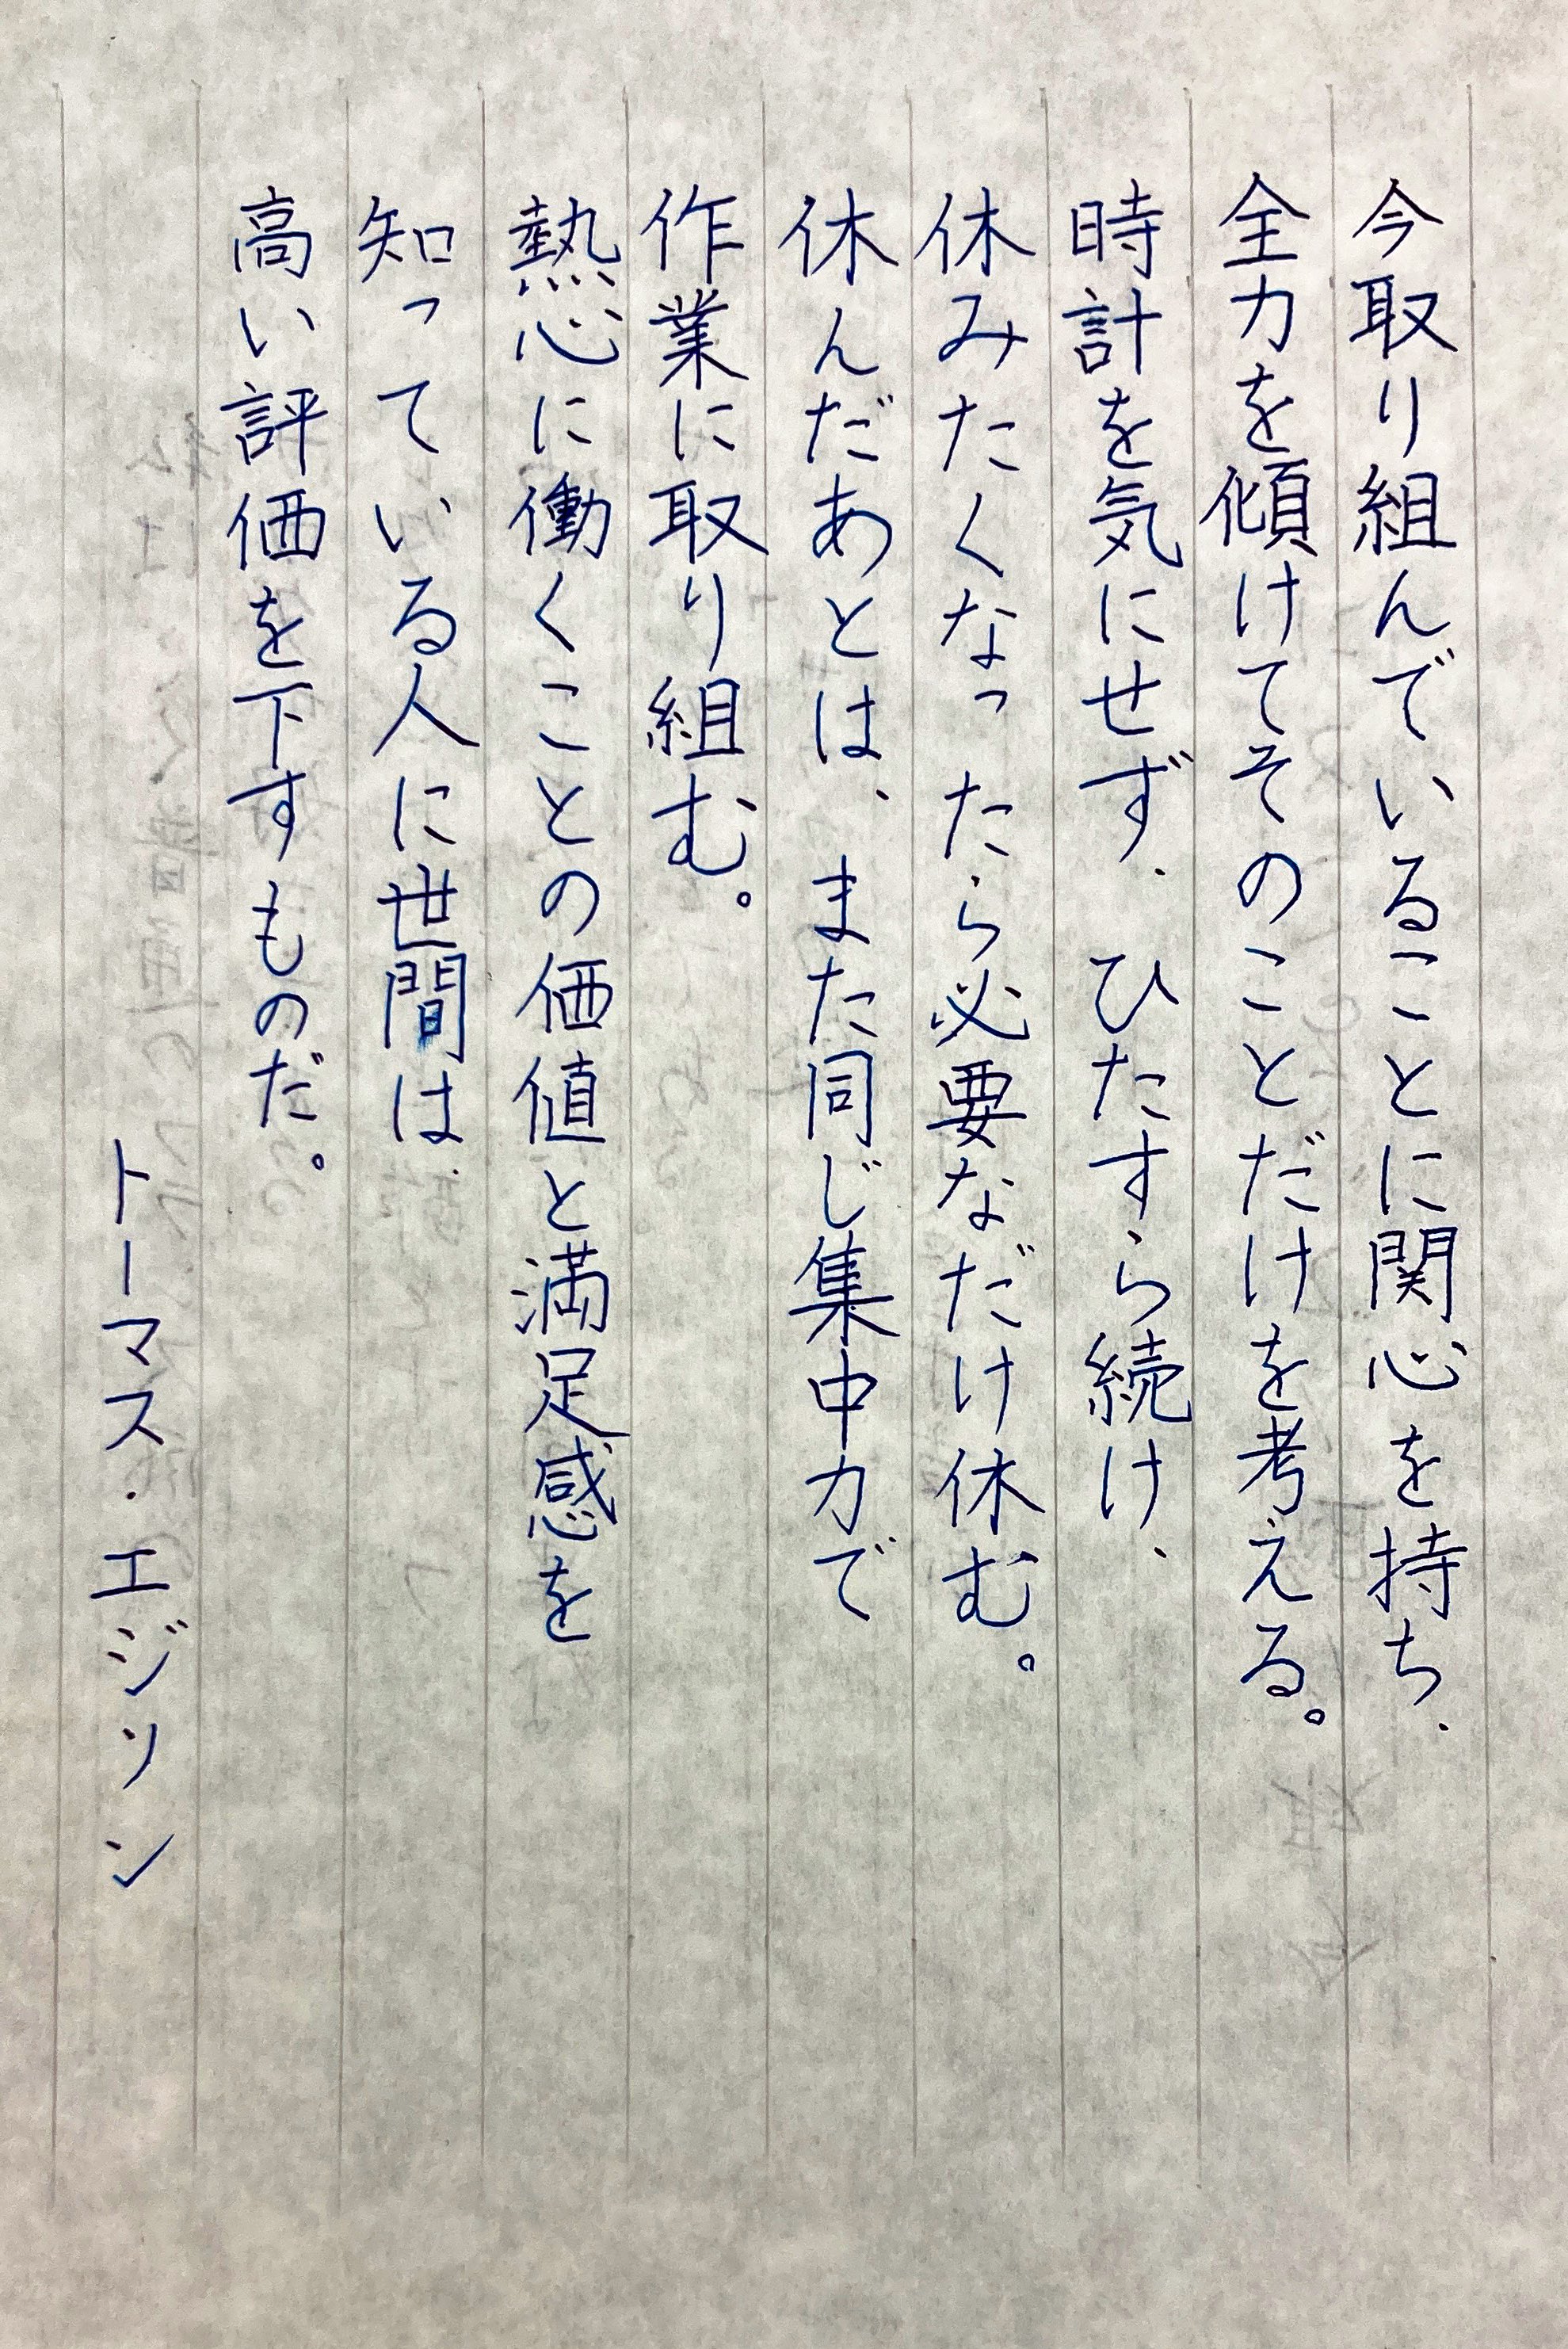 今取り組んでいることに関心を持ち、
全力を傾けてそのことだけを考える。
時計を気にせず、ひたすら続け、
休みたくなったら必要なだけ休む。
休んだあとは、また同じ集中力で
作業に取り組む。
熱心に働くことの価値と満足感を
知っている人に世間は
高い評価を下すものだ。
トーマス・エジソン